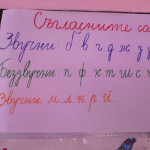 Съгласните са
Звучни: б в г д ж з
Беззвучни: п ф к т ш с
Звучни: м л н р й